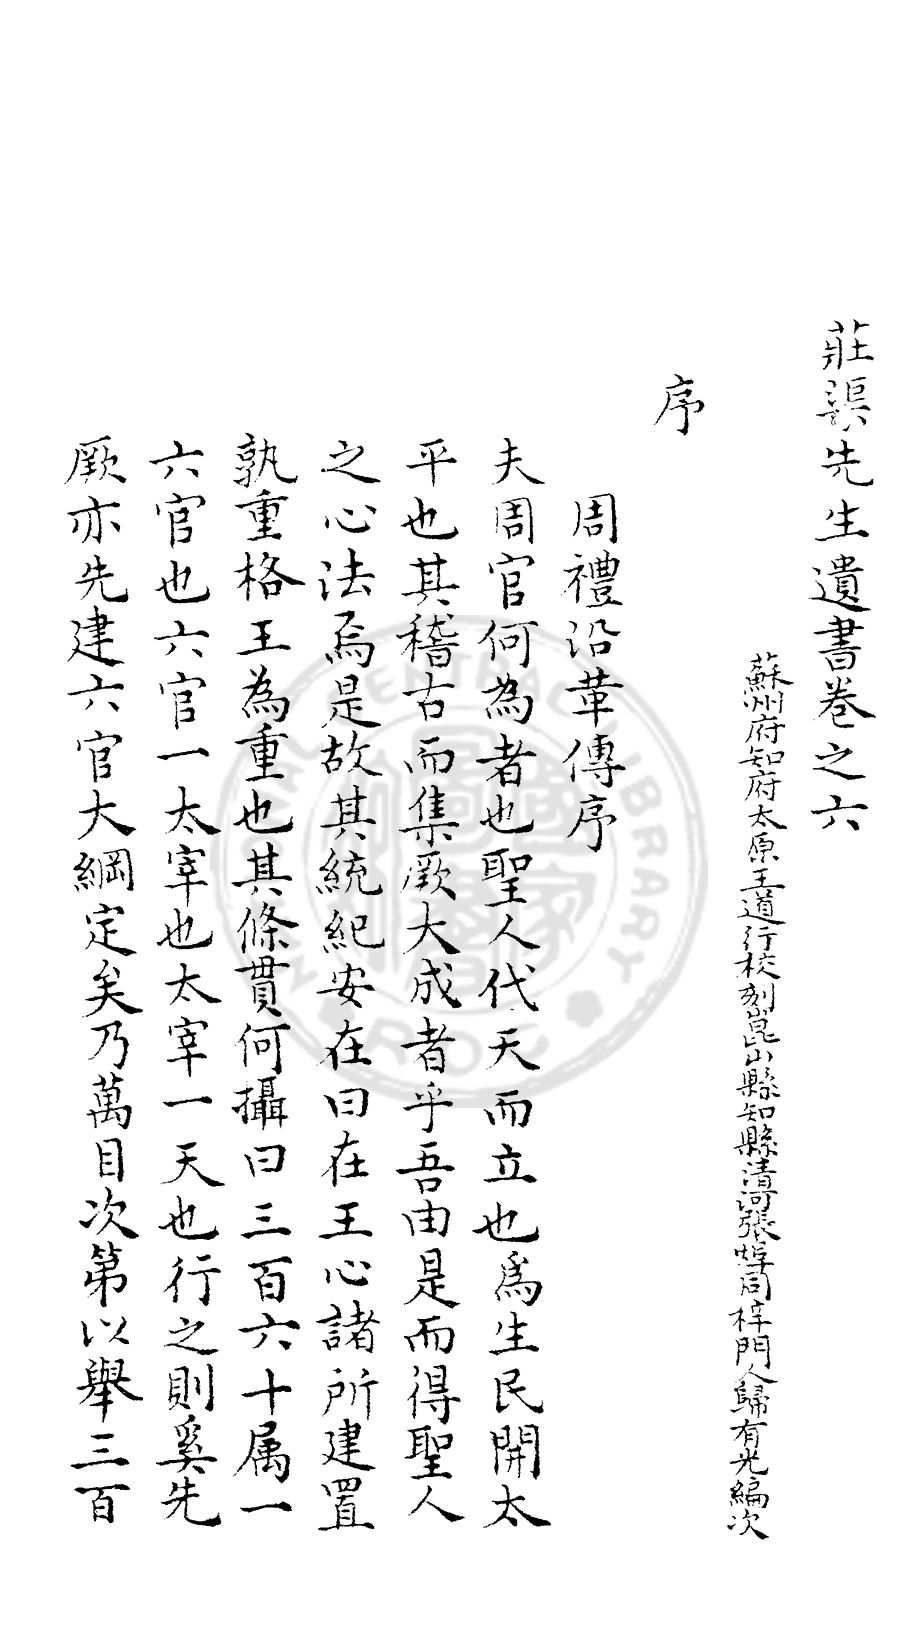 莊渠先生遺書卷之六
蘇州府知府太原王道行校刻崑山縣知縣清河張焯同梓門人歸有光編次
序
周禮沿革傳序
夫周官何為者也聖人代天而立也爲生民開太
平也其稽古而集厥大成者乎吾由是而得聖人
之心法焉是故其統紀安在曰在王心諸所建置
孰重格王為重也其條貫何攝曰三百六十属一
六官也六官一太宰也太宰一天也行之則奚先
厥亦先建六官大綱定矣乃萬目次第以舉三百
NATIONAL CENTRAL LIBRARY
R.O.C.
國家圖書館